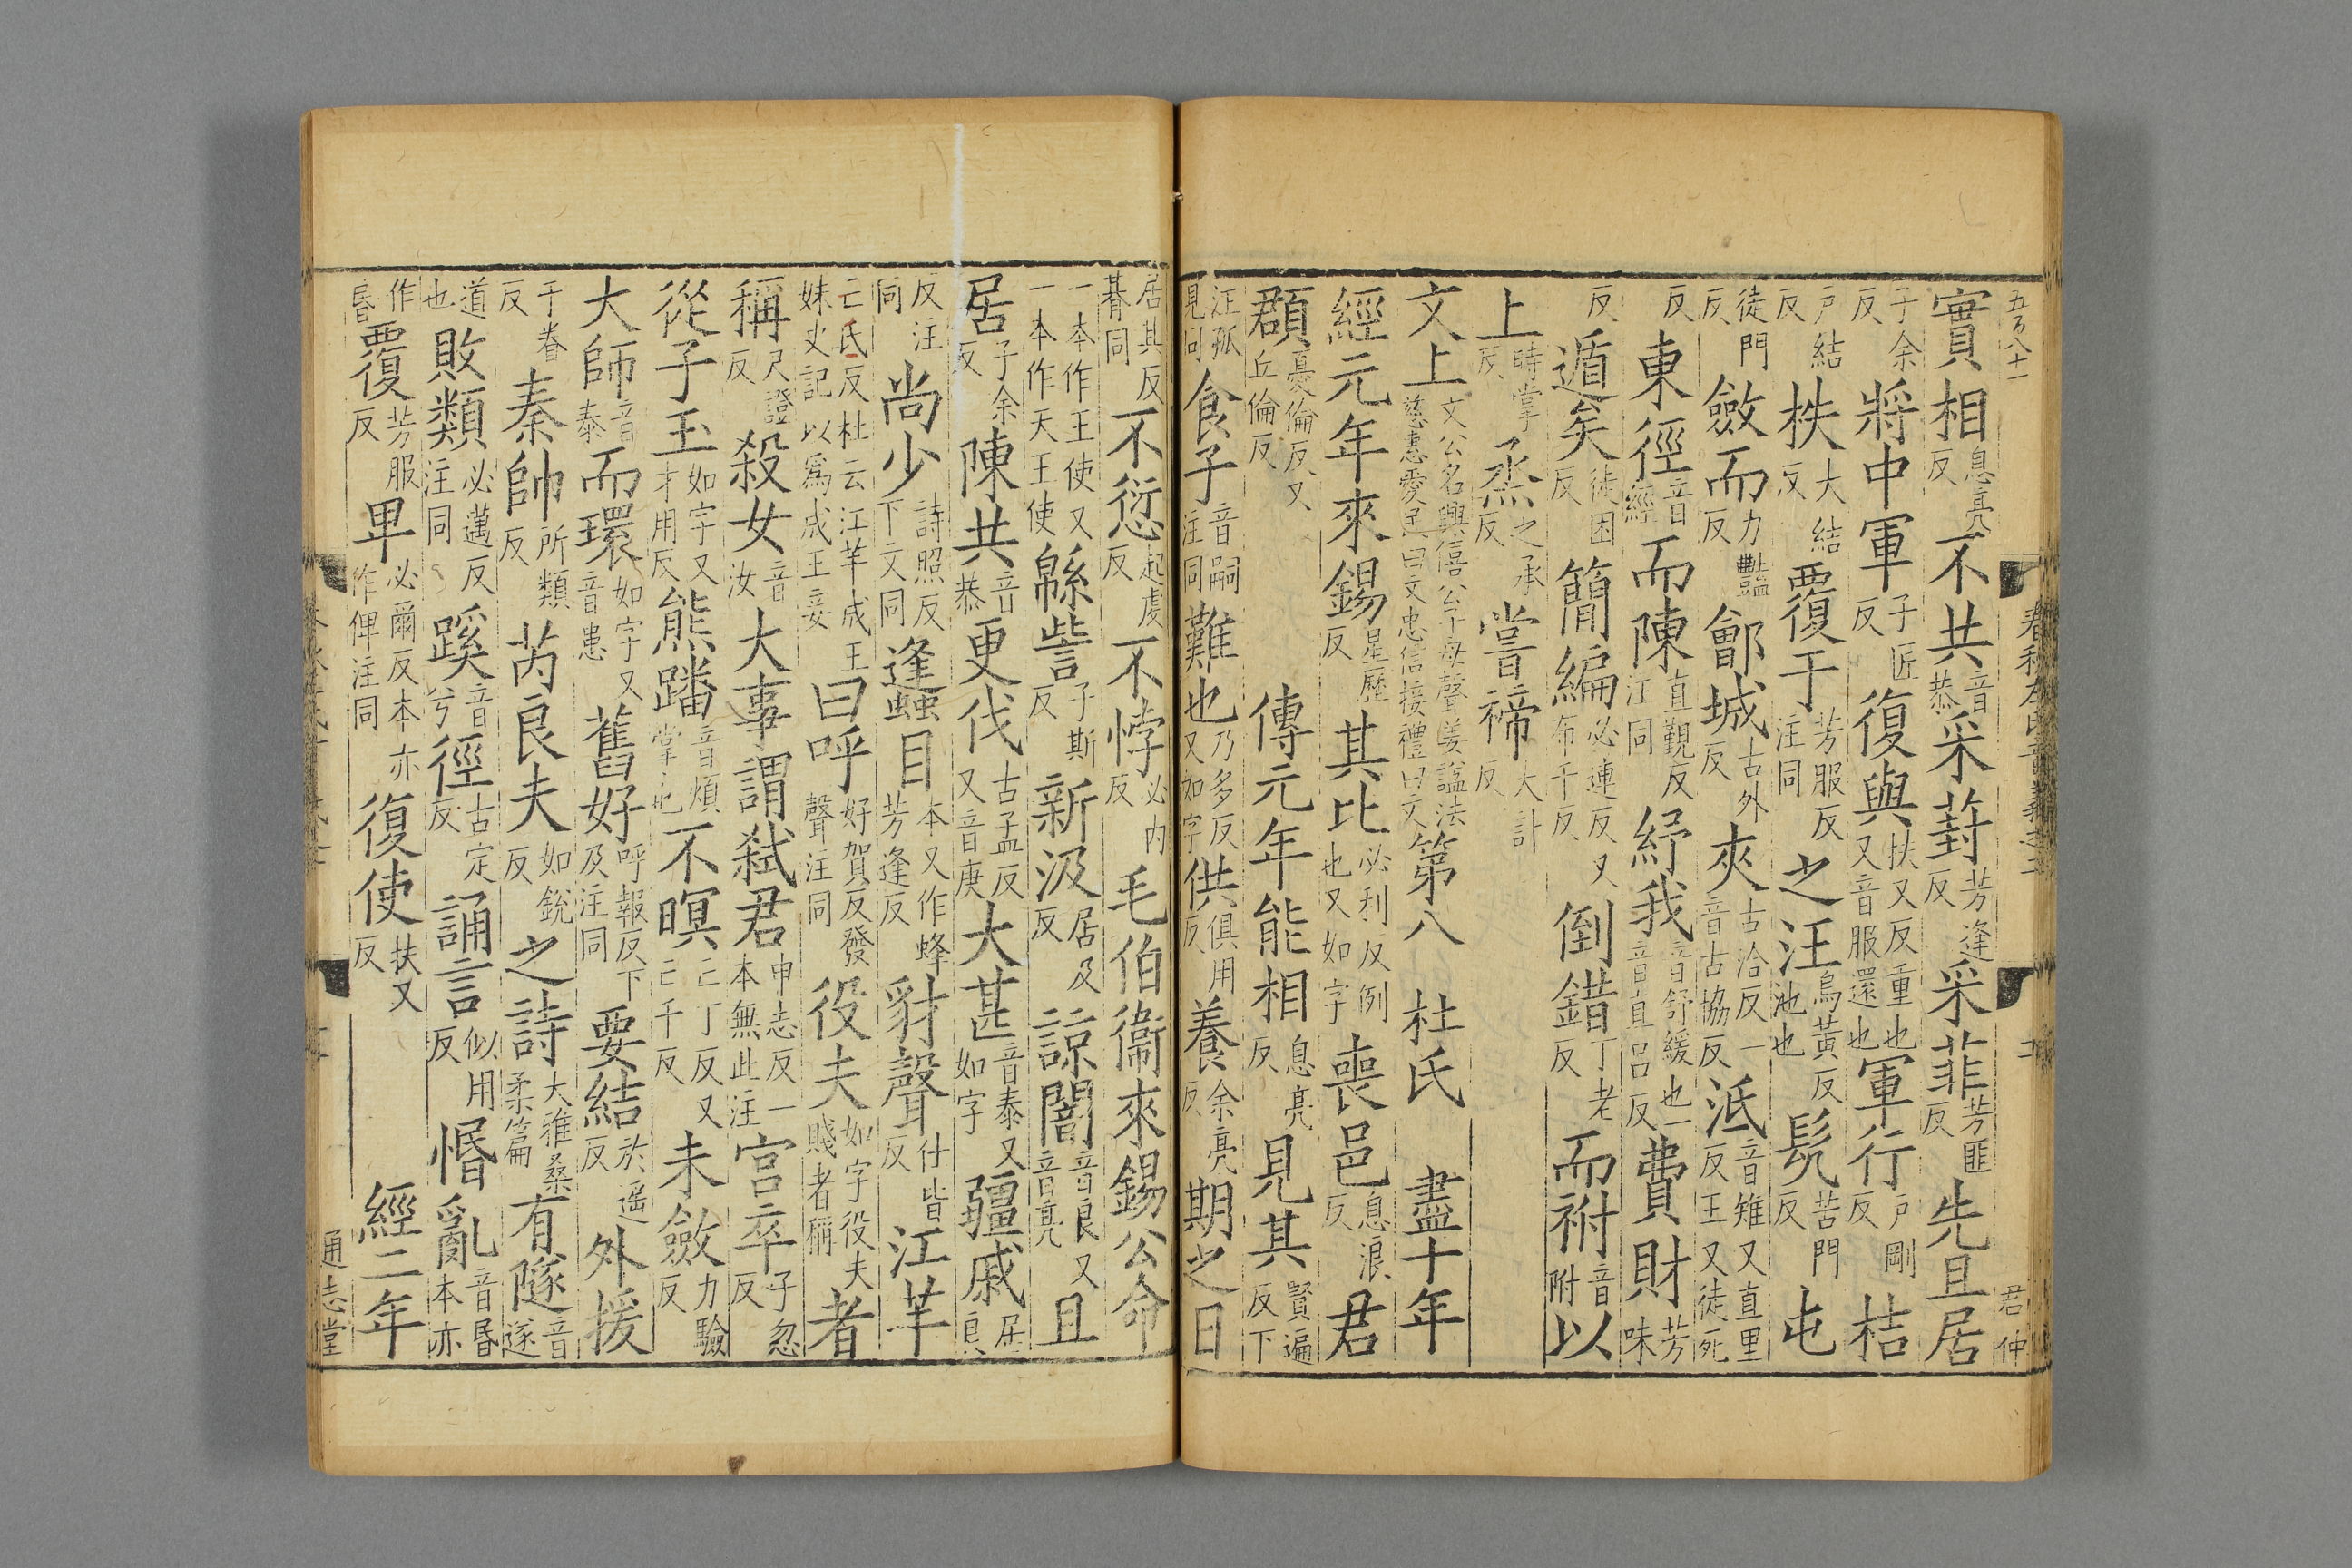 五百八十一
實相息亮反不共音恭采葑芳逢反采菲芳匪反先且居
子余反將中軍子匠反復與扶又反重也又音服還也軍行戶剛反桔
戶結反柣大結反覆于芳服反注同之汪烏黃反池也髡苦門反屯
徒門反斂而力豔反鄶城古外反夾古洽反一音古協反泜音雉又直里反王又徒死
反東徑音經而陳直覲反注同紓我音舒緩也一音直呂反費財芳味
反遁矣徒困反簡編必連反又布千反倒錯丁老反而祔音附以
上時掌反烝之承反嘗禘大計反
文上文公名興僖公子母聲姜謚法慈惠愛民曰文忠信接禮曰文第八 杜氏 盡十年
經元年來錫星歷反其比必利反例也又如字喪邑息浪反君
頵憂倫反又丘倫反傳元年能相息亮反見其賢遍反下
注孤見同食子音嗣注同難也乃多反又如字供俱用反養余亮反期之日
春秋左氏音義之二
君仲
居其反朞同不愆起虔反不悖必內反毛伯衞來錫公命
一本作王使又一本作天王使緜訾子斯反新汲居及反諒闇音良又音亮且
居子余反陳共音恭更伐古孟反又音庚大甚音泰又如字疆戚居良
反注同尚少詩照反下文同逢䗬目本又作蜂芳逢反豺聲仕皆反江芊
亡氏反杜云江芊成王妹史記以爲成王妾曰呼好賀反發聲注同役夫如字役夫賤者稱者
稱尺證反殺女音汝大事謂弑君申志反一本無此注宮卒子忽反
從子玉如字又才用反熊蹯音煩掌也不暝亡丁反又亡千反未斂力驗反
大師音泰而環如字又音患舊好呼報反下及注同要結於遥反外援
于眷反秦帥所類反芮良夫如銳反之詩大雅桑柔篇有隧音遂
道也敗類必邁反注同蹊音兮徑古定反誦言似用反惛亂音昬本亦
作昬覆芳服反卑必爾反本亦作俾注同復使扶又反經二年
通志堂